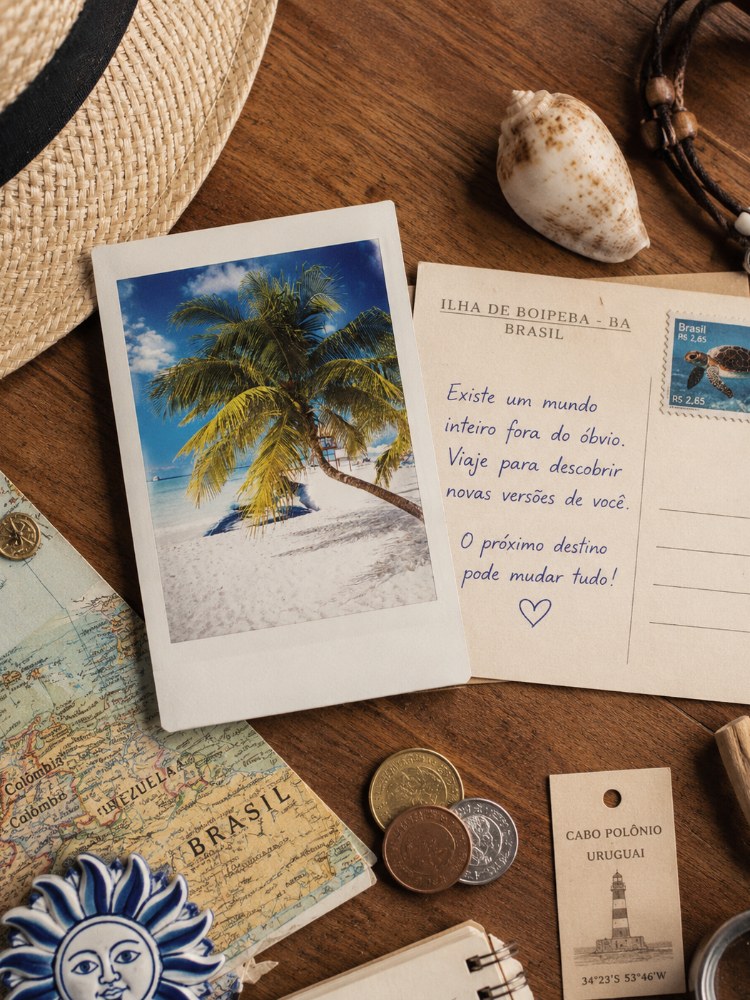 ILHA DE BOIPEBA - BA
BRASIL
Brasil
R$ 2,65
R$ 2,65
Existe um mundo
inteiro fora do óbvio.
Viaje para descobrir
novas versões de você.
O próximo destino
pode mudar tudo!
Colômbia
Colômbo
VENEZUELA
BRASIL
CABO POLÔNIO
URUGUAI
34°23'S 53°46'W